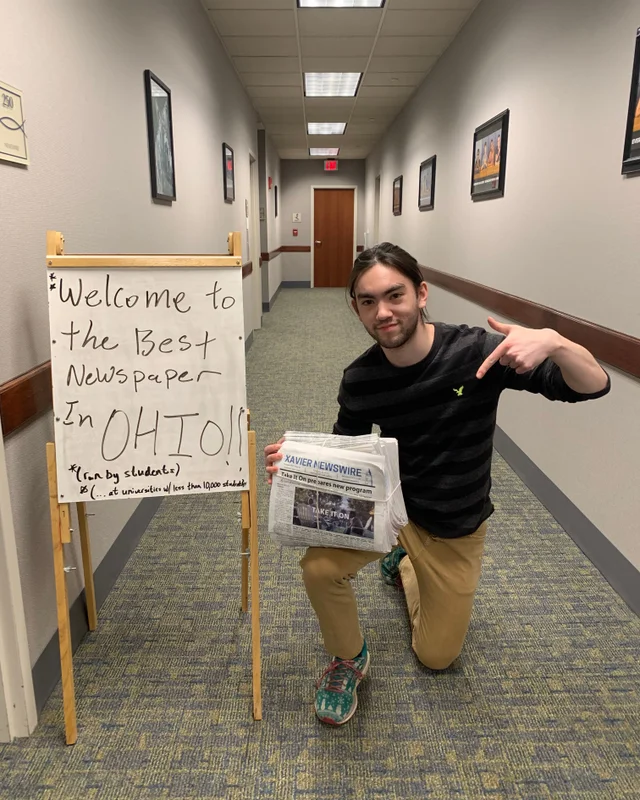 290
*Welcome to
the Best
Newspaper
In OHIO!!
*(run by students)
*(... at universities w/ less than 10,000 students
XAVIER NEWSWIRE
Take It On prepares new program
TAKE IT ON